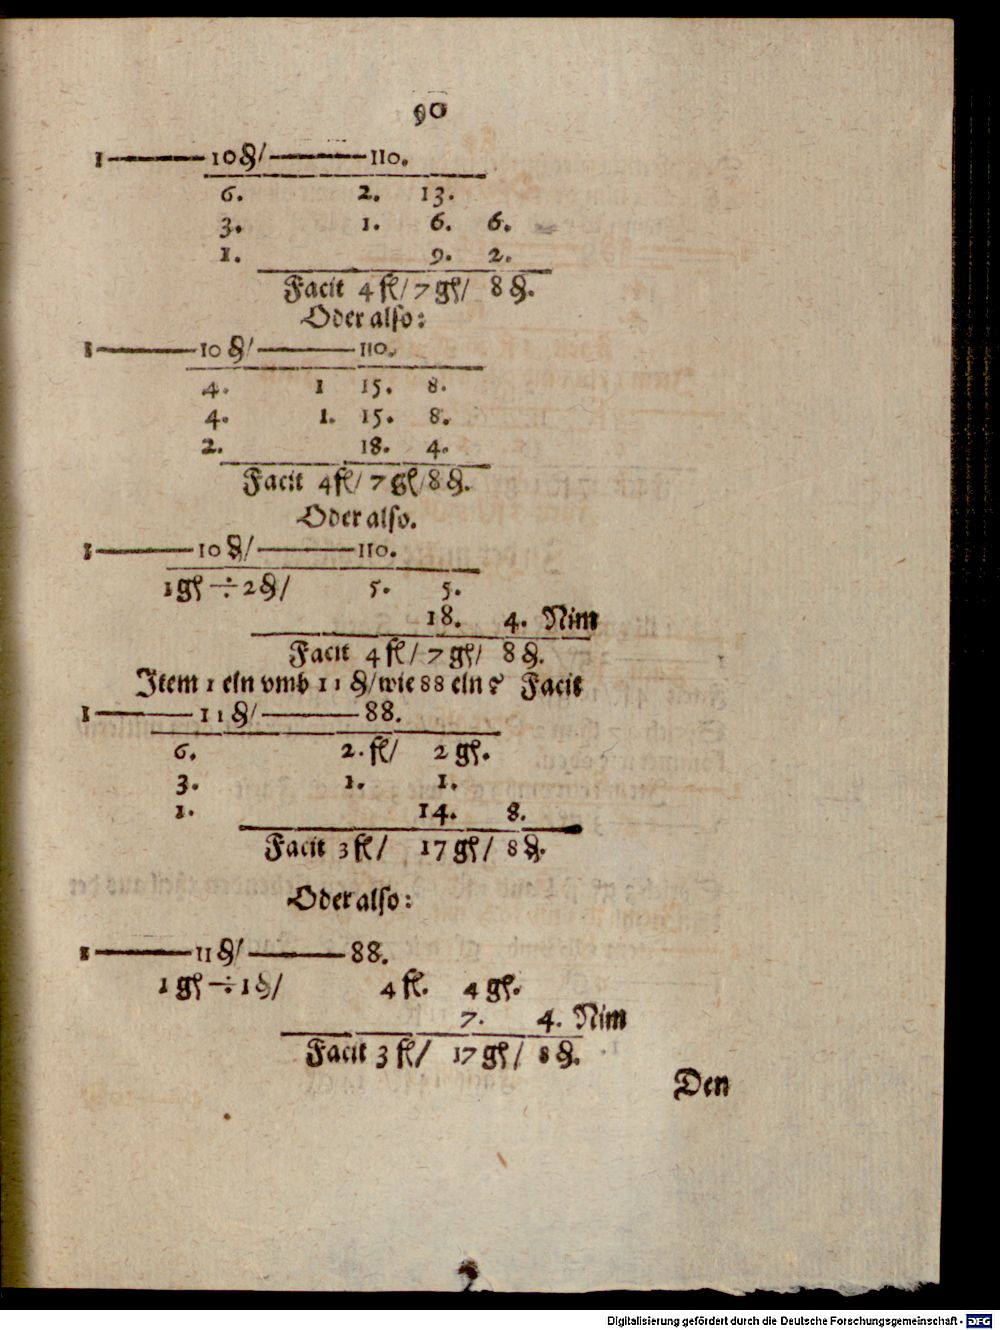 90
1————10₰/————110.
6. 2. 13.
3. 1. 6. 6.
1. 9. 2.
Facit 4 fl/ 7 gſ/ 8 ₰.
Oder alſo:
1————10 ₰/————110.
4. 1 15. 8.
4. 1. 15. 8.
2. 18. 4.
Facit 4 fl/ 7 gſ/ 8 ₰.
Oder alſo.
1————10 ₰/————110.
1gſ ÷ 2₰/ 5. 5.
18. 4. Nim
Facit 4 fl/ 7 gſ/ 8 ₰.
Item 1 eln vmb 11 ₰/ wie 88 eln? Facit
1————11₰/————88.
6. 2. fl/ 2 gſ.
3. 1. 1.
1. 14. 8.
Facit 3 fl/ 17 gſ/ 8 ₰.
Oder alſo:
1————11 ₰/————88.
1 gſ ÷ 1₰/ 4 fl. 4 gſ.
7. 4. Nim
Facit 3 fl/ 17 gſ/ 8 ₰.
Den
Digitalisierung gefördert durch die Deutsche Forschungsgemeinschaft - DFG